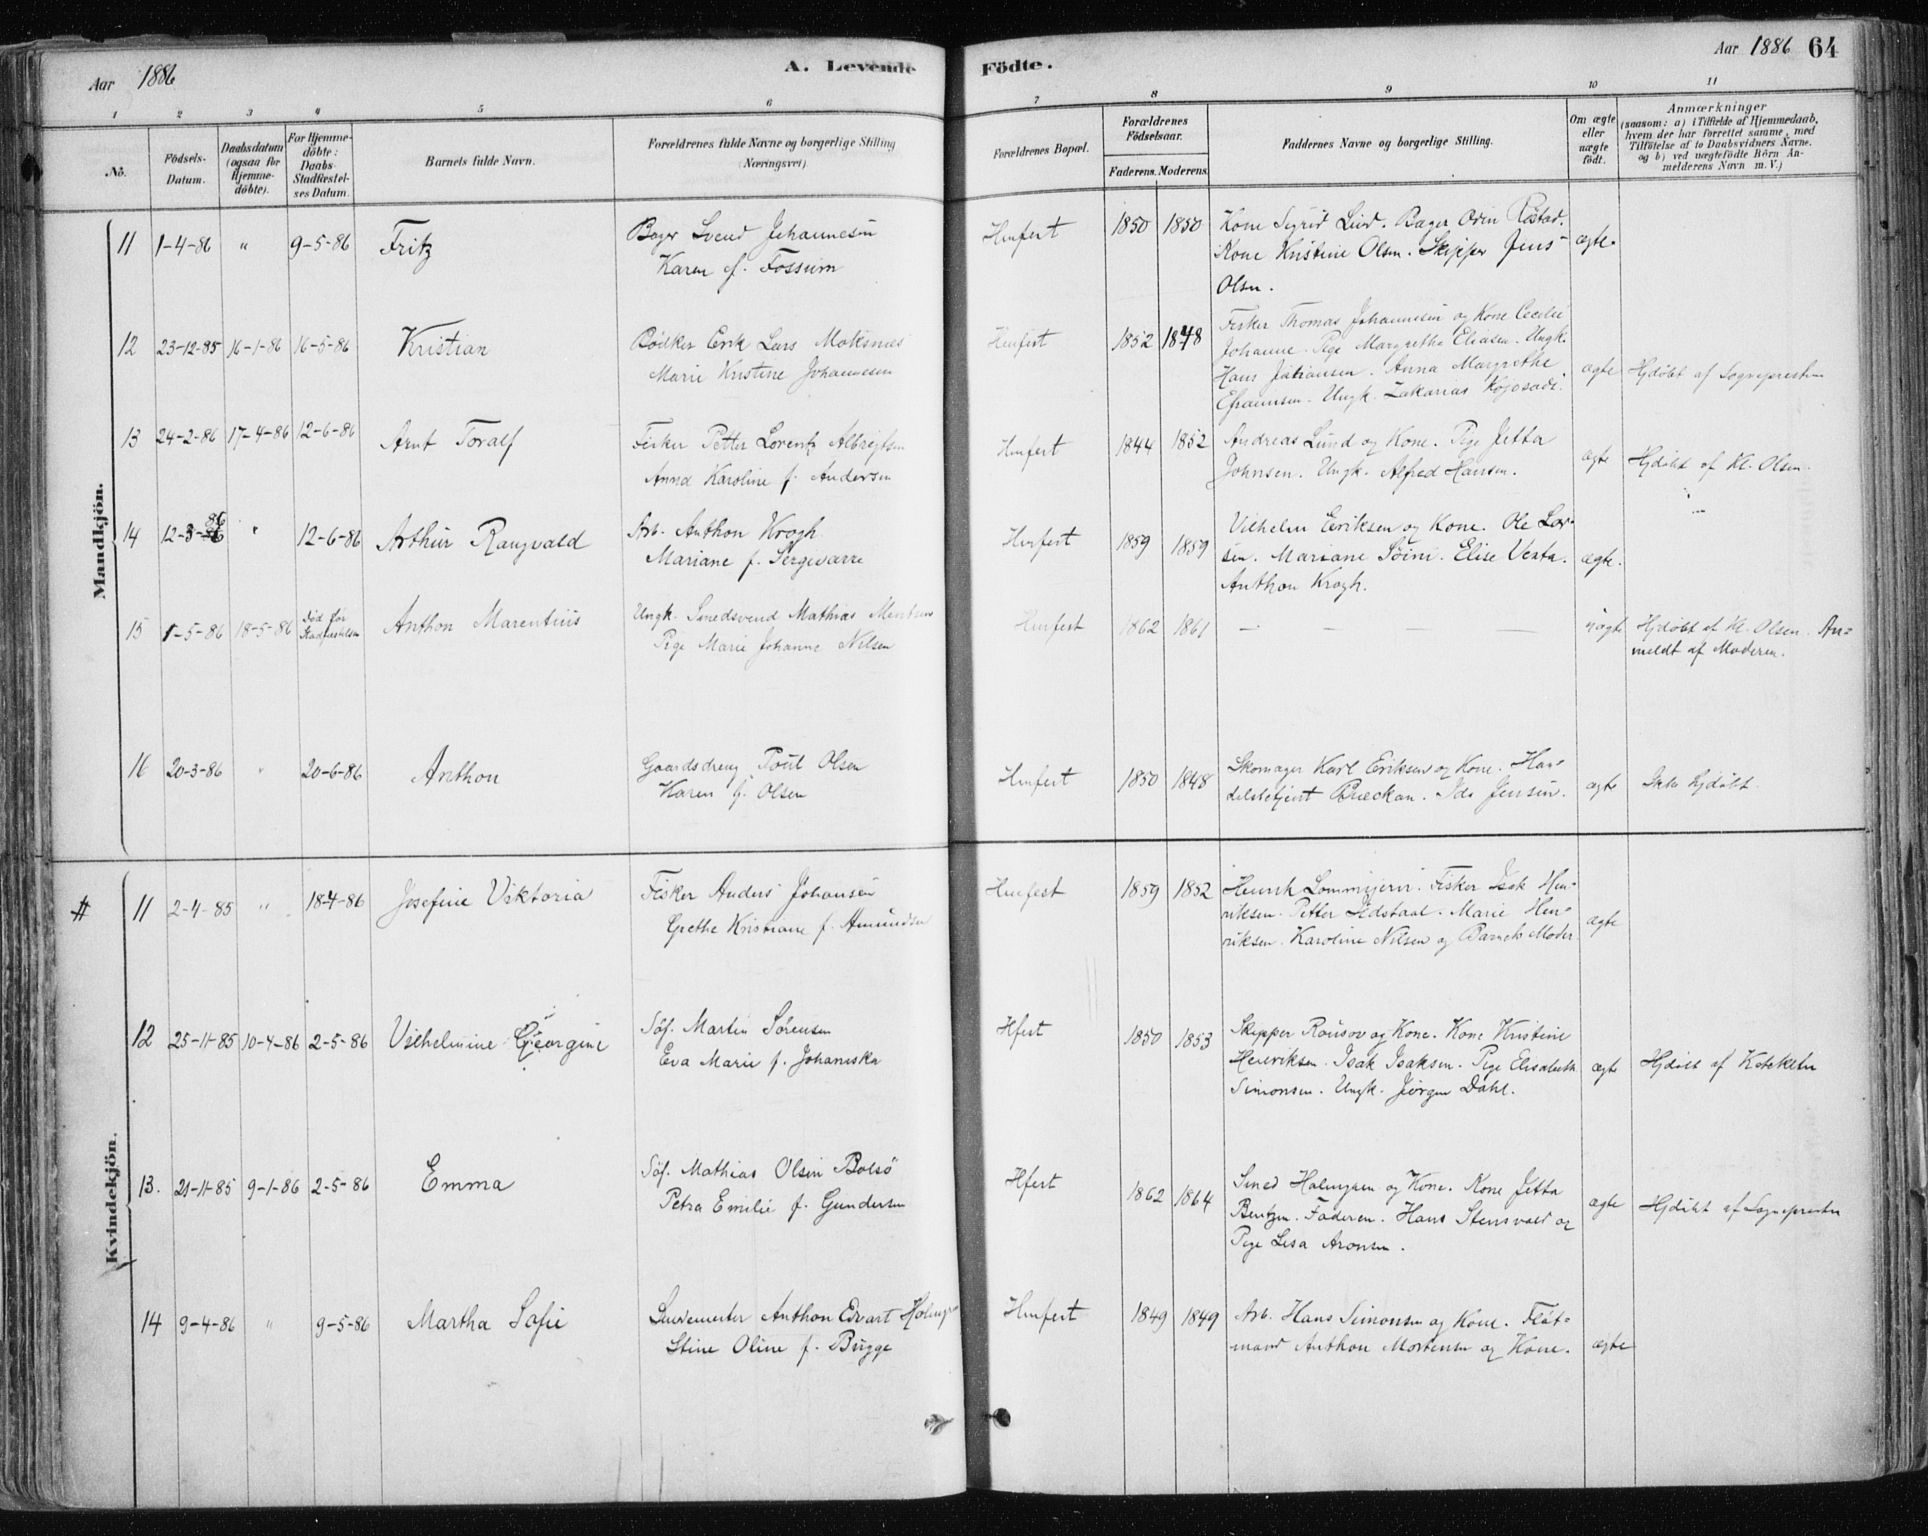 Aar 1886
A. Levende Födte.
Aar 1886 64
1 2 3 4 5 6 7 8 9 10 11
No.
Födsels-Datum.
Daabsdatum (ogsaa for Hjemme-döbte).
For Hjemme-döbte: Daabs-Stadfæstel-ses Datum.
Barnets fulde Navn.
Forældrenes fulde Navne og borgerlige Stilling (Næringsvei).
Forældrenes Bopæl.
Forældrenes Födselsaar.
Faderens. Moderens.
Faddernes Navne og borgerlige Stilling.
Om ægte eller uægte födt.
Anmærkninger
(saasom: a) i Tilfælde af Hjemmedaab, hvem der har forrettet samme, med Tilföielse af to Daabsvidners Navne. og b) ved uægtefödte Börn An-melderens Navn m. V.)
Mandkjön.
11 1-4-86 " 9-5-86 Fritz
Bager Svend Johannesen
Karen f. Fossum
Hmfest 1850 1850
Kone Sigrid Lind. Bager Odin Röstad.
Kone Kristine Olsen. Skipper Jens
Olsen.
ægte
12 23-12-85 16-1-86 16-5-86 Kristian
Bödker Erik Lars Moksnes
Marie Kristine Johannesen
Hmfest 1852 1848
Fisker Thomas Johannesen og Kone Cecilie
Johanne. Pige Margrethe Eliasen. Ungk.
Hans Johansen. Anna Margrethe
Efraimsen. Ungk. Zakarias
ægte Hjdöbt af Sognepresten
13 24-2-86 17-4-86 12-6-86 Arnt Toralf
Fisker Petter Lorentz Albrigtsen
Anna Karoline f. Andersen
Hmfest 1844 1852
Andreas Lund og Kone. Pige Jetta
Johnsen. Ungk. Alfred Hansen.
ægte Hjdöbt af Kl. Olsen.
14 12-3-86 " 12-6-86 Arthur Rangvald
Arb. Anthon Krogh
Mariane f. Sergevarre
Hmfest 1859 1859
Vilhelm Eriksen og Kone. Ole Lar-
sen. Mariane Söini. Elise Venta.
Anthon Krogh.
ægte.
15 1-5-86 18-5-86 Död för Stadfæstelsen Anthon Marentius
Ungk. Smedsvend Mathias
Pige Marie Johanne Nilsen
Hmfest 1862 1861 — — — —
uægte Hjdöbt af Kl. Olsen. An-
meldt af Moderen.
16 20-3-86 " 20-6-86 Anthon
Gaardsdreng Poul Olsen
Karen f. Olsen
Hmfest 1850 1848
Skomager Karl Eriksen og Kone. Han-
delsbetjent Breckan. Ida Jensen.
ægte Ikke hjdöbt.
Kvindekjön.
# 11 2-4-85 " 18-4-86 Josefine Viktoria
Fisker Anders Johansen
Grethe Kristiane f. Amundsen
Hmfest 1859 1852
Henrik Lommijervi. Fisker Isak Hen-
riksen. Petter Idstaal. Marie Hen-
riksen. Karoline Nilsen og Barnets Moder
ægte
12 25-11-85 10-4-86 2-5-86 Vilhelmine Georgine
Söf. Martin Sörensen
Eva Marie f. Johaniska
Hfest 1850 1853
Skipper Rousov og Kone. Kone Kristine
Henriksen. Isak Isaksen. Pige Elisabeth
Simonsen. Ungk. Jörgen Dahl.
ægte Hjdöbt af Kateketen
13. 21-11-85 9-1-86 2-5-86 Emma
Söf. Mathias Olsen Bolsö
Petra Emilie f. Gundersen
Hfest 1862 1864
Smed Holmgren og Kone. Kone Jetta
Bentzen. Faderen. Hans Stensvold og
Pige Lisa Aronsen.
ægte Hjdöbt af Sognepresten
14 9-4-86 " 9-5-86 Martha Sofie
Smedemester Anthon Edvart Holmgren
Stine Oline f. Bugge
Hmfest 1849 1849
Arb. Hans Simonsen og Kone. Flöt-
mand Anthon Mortensen og Kone.
ægte